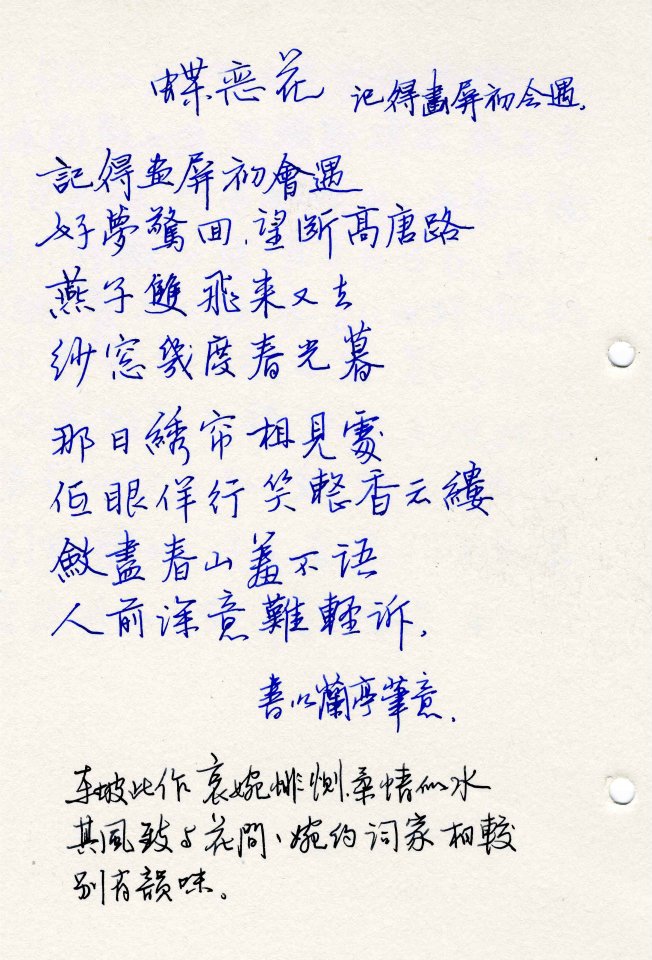 蝶恋花 记得畫屏初会遇.
記得畫屏初會遇
好夢驚回,望斷高唐路
燕子雙飛来又去
纱窓幾度春光暮
那日綉帘相見處
佢眼佯行笑整香云縷
斂盡春山羞不语
人前深意難輕诉.
書以蘭亭筆意.
东坡此作哀婉悱恻.柔情似水
其风致与花間、婉约词家相較
别有韻味。